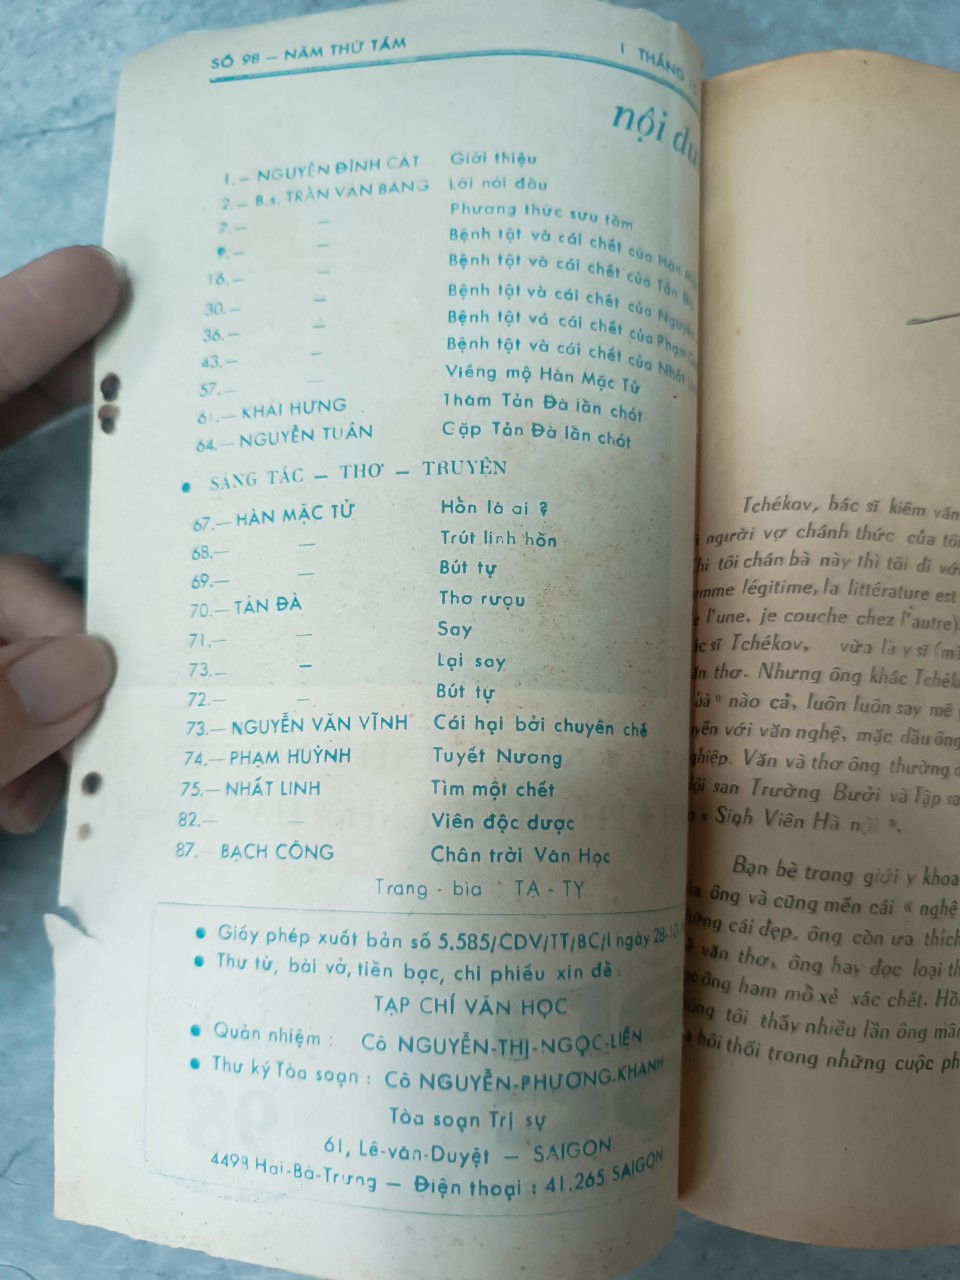 SỐ 98 — NĂM THỨ TÁM
1 THÁNG
nội du
1.— NGUYỄN ĐÌNH CÁT Giới thiệu
2.— B.s. TRẦN VĂN BẢNG Lời nói đầu
7.— — Phương thức sưu tầm
9.— — Bệnh tật và cái chết của Hàn Mặ
16.— — Bệnh tật và cái chết của Tản Đà
30.— — Bệnh tật và cái chết của Nguyễn
36.— — Bệnh tật và cái chết của Phạm
43.— — Bệnh tật và cái chết của Nhất Linh
57.— — Viếng mộ Hàn Mặc Tử
61.— KHÁI HƯNG Thăm Tản Đà lần chót
64.— NGUYỄN TUÂN Gặp Tản Đà lần chót
• SÁNG TÁC — THƠ — TRUYỆN
67.— HÀN MẶC TỬ Hồn là ai ?
68.— — Trút linh hồn
69.— — Bút tự
70.— TẢN ĐÀ Thơ rượu
71.— — Say
73.— — Lại say
72.— — Bút tự
73.— NGUYỄN VĂN VĨNH Cái hại bởi chuyên chế
74.— PHẠM HUỲNH Tuyết Nương
75.— NHẤT LINH Tìm một chết
82.— — Viên độc dược
87.— BẠCH CÔNG Chân trời Văn Học
Trang - bìa TẠ - TY
• Giấy phép xuất bản số 5.585/CDV/TT/BC/I ngày 28-10
• Thư từ, bài vở, tiền bạc, chi phiếu xin đề :
TẠP CHÍ VĂN HỌC
• Quản nhiệm : Cô NGUYỄN-THỊ-NGỌC-LIÊN
• Thư ký Tòa soạn : Cô NGUYỄN-PHƯƠNG-KHANH
Tòa soạn Trị sự
61, Lê-văn-Duyệt — SAIGON
449B Hai-Bà-Trưng — Điện thoại : 41.265 SAIGON
Tchékov, bác sĩ kiêm văn
người vợ chánh thức của tôi
hi tôi chán bà này thì tôi đi vớ
emme légitime, la littérature est
l'une, je couche chez l'autre)
ác sĩ Tchékov, vừa là y sĩ (m
ăn thơ. Nhưng ông khác Tchék
bà" nào cả, luôn luôn say mê
uyến với văn nghệ, mặc dầu ông
ghiệp. Văn và thơ ông thường
ội san Trường Bưởi và Tập sa
« Sinh Viên Hà nội ».
Bạn bè trong giới y khoa
ông và cũng mến cái « nghệ
hững cái đẹp, ông còn ưa thích
văn thơ, ông hay đọc loại th
ông ham mổ xẻ xác chết. Hồ
úng tôi thấy nhiều lần ông mân
hôi thối trong những cuộc ph